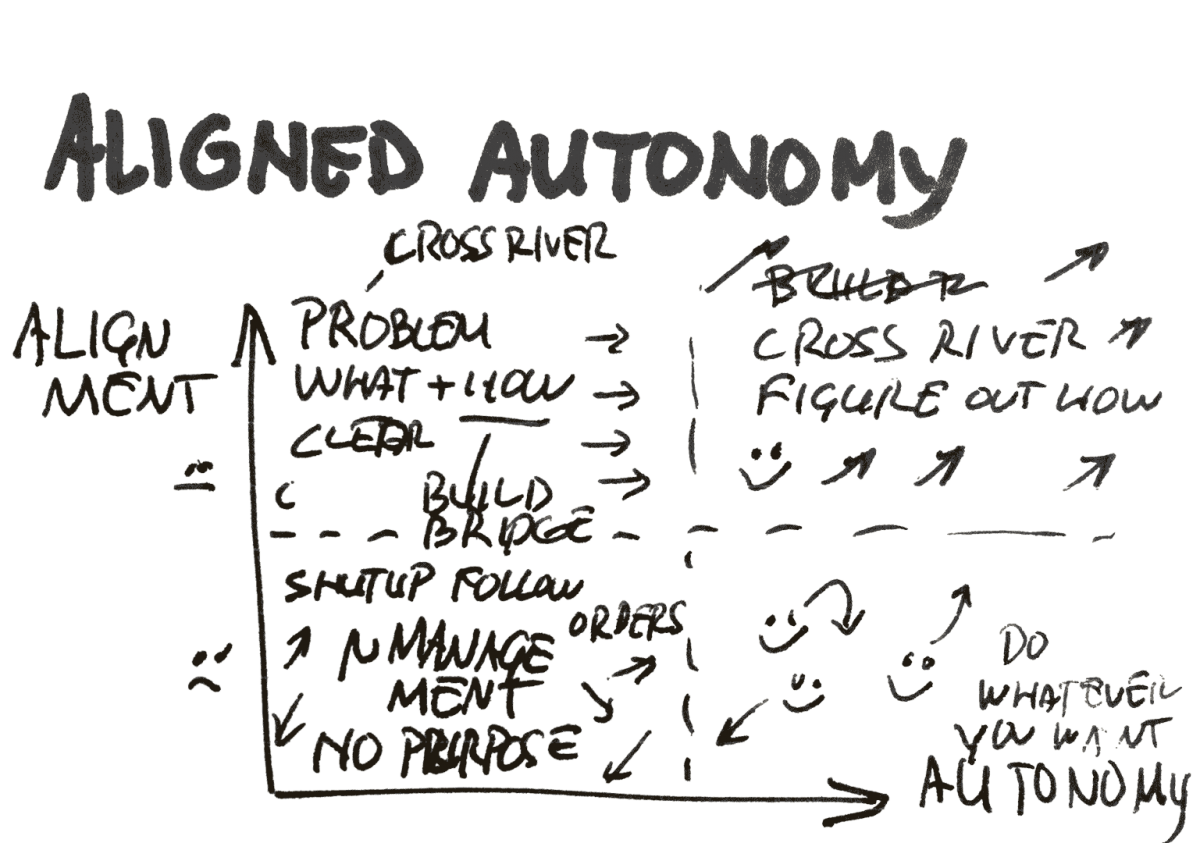 ALIGNED AUTONOMY
CROSS RIVER
ALIGN
MENT
PROBLEM
WHAT + HOW
CLEAR
BUILD
BRIDGE
CROSS RIVER
FIGURE OUT HOW
SHUTUP FOLLOW
ORDERS
MANAGE
MENT
NO PURPOSE
DO
WHATEVER
YOU WANT
AUTONOMY